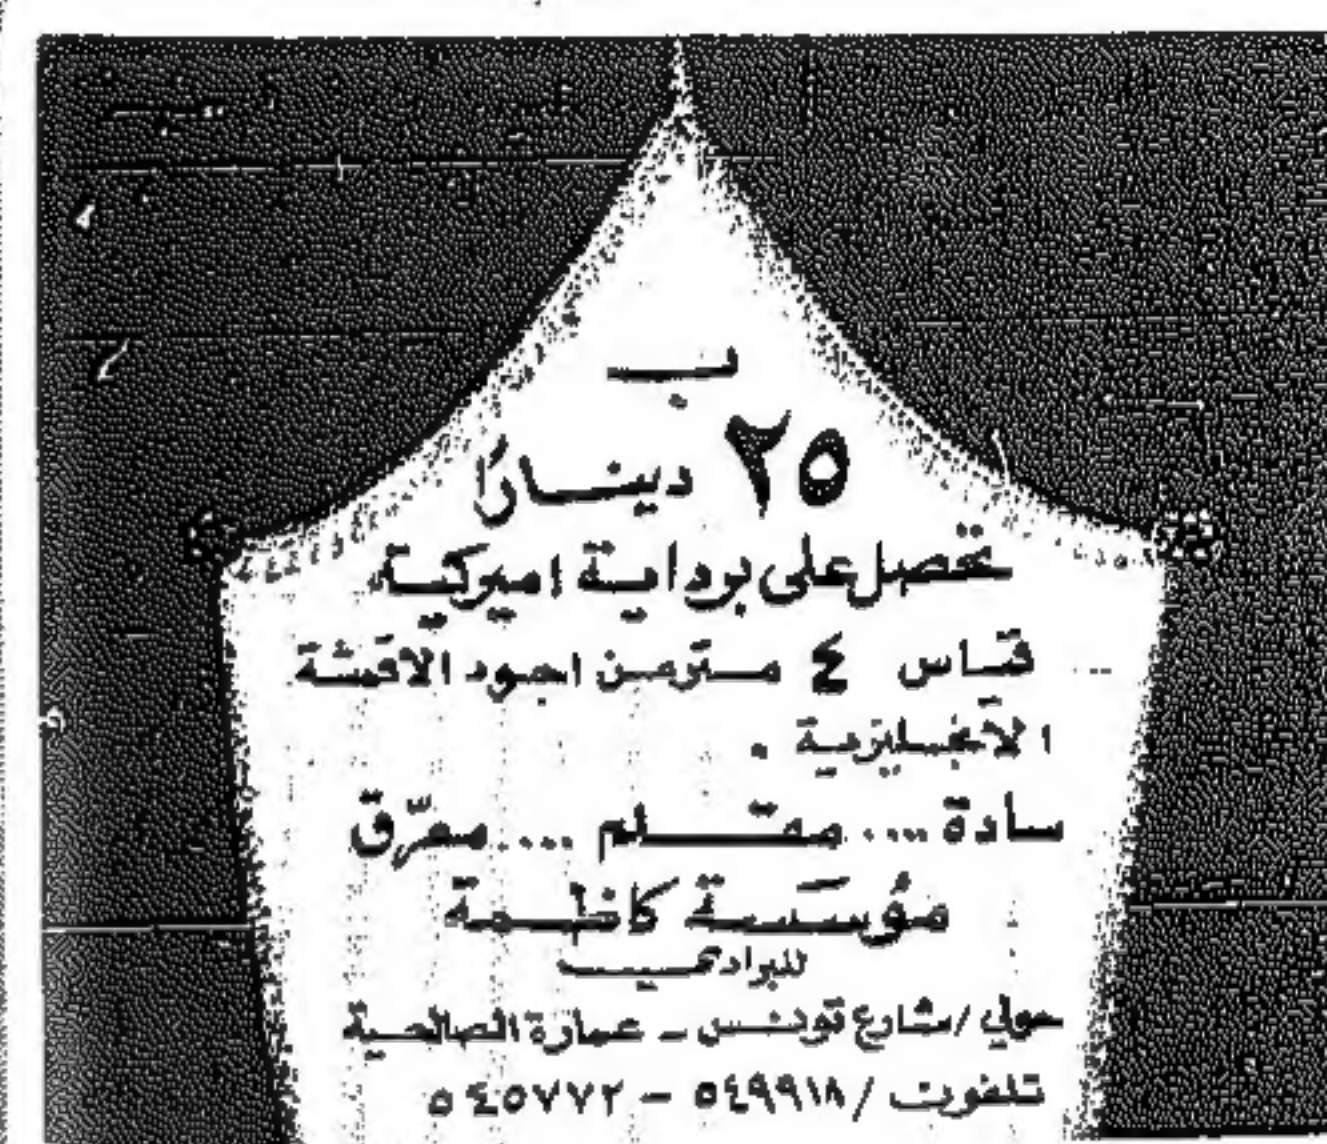 بـ
٢٥ دينـارًا
تحصل على برداية اميركية
قيـاس ٤ مـترمـن اجـود الاقمشة
الانجـليزية .
سادة .... مقـلم .... معرّق
مؤسَسـة كاظـمة
للبرادي
حولي / شارع تونـس ـ عمارة الصالحية
تلفون / ٥٤٩٩١٨ – ٥٤٥٧٧٢